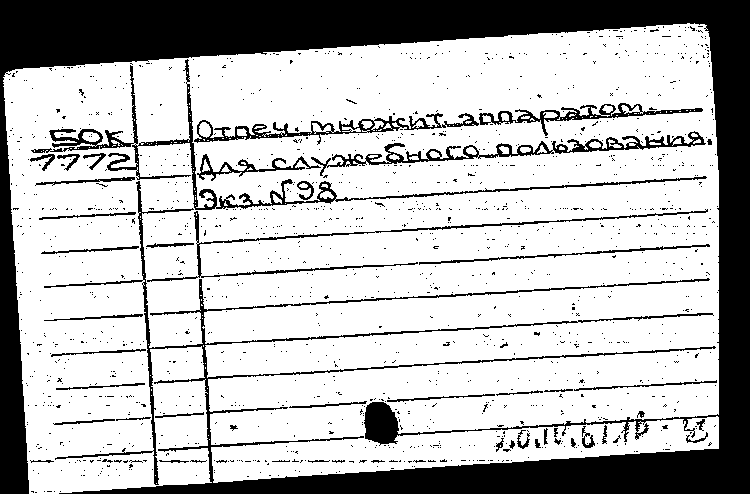 50К Отпеч. множит. аппаратом.
7772 Для служебного пользования.
Экз. №98.
20.IV.61